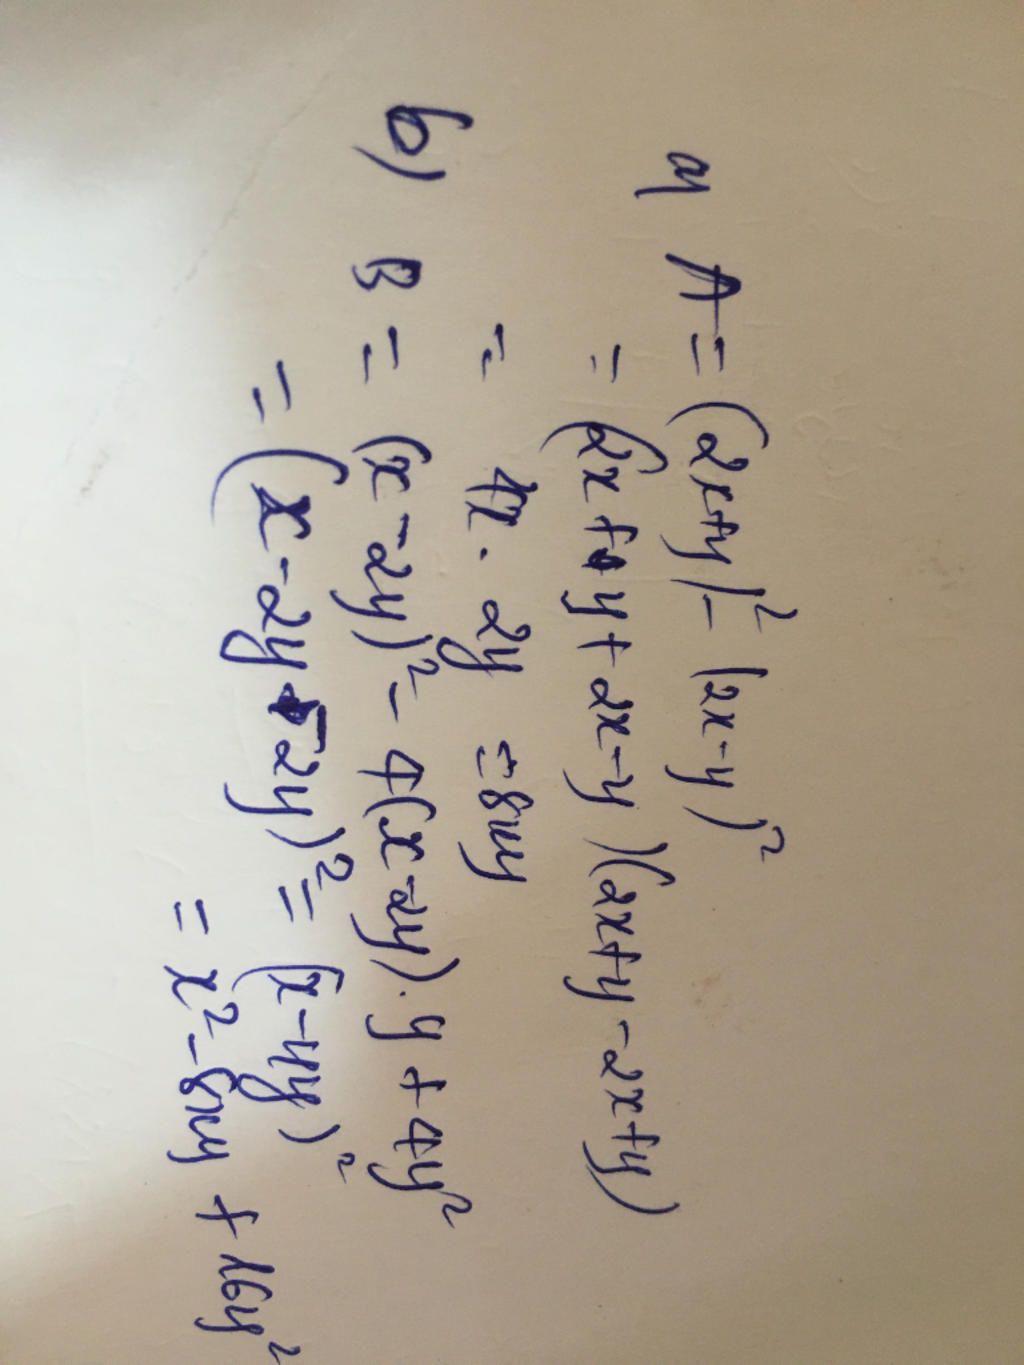 a) A = (2x+y)² - (2x-y)²
= (2x+y+2x-y)(2x+y-2x+y)
= 4x . 2y = 8xy
b) B = (x-2y)² - 4(x-2y).y + 4y²
= (x-2y-2y)² = (x-4y)²
= x² - 8xy + 16y²